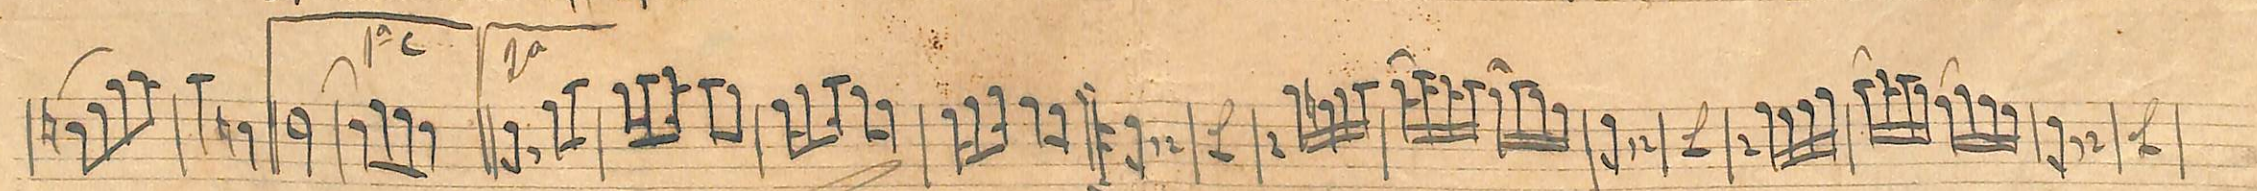 1ª 2ª